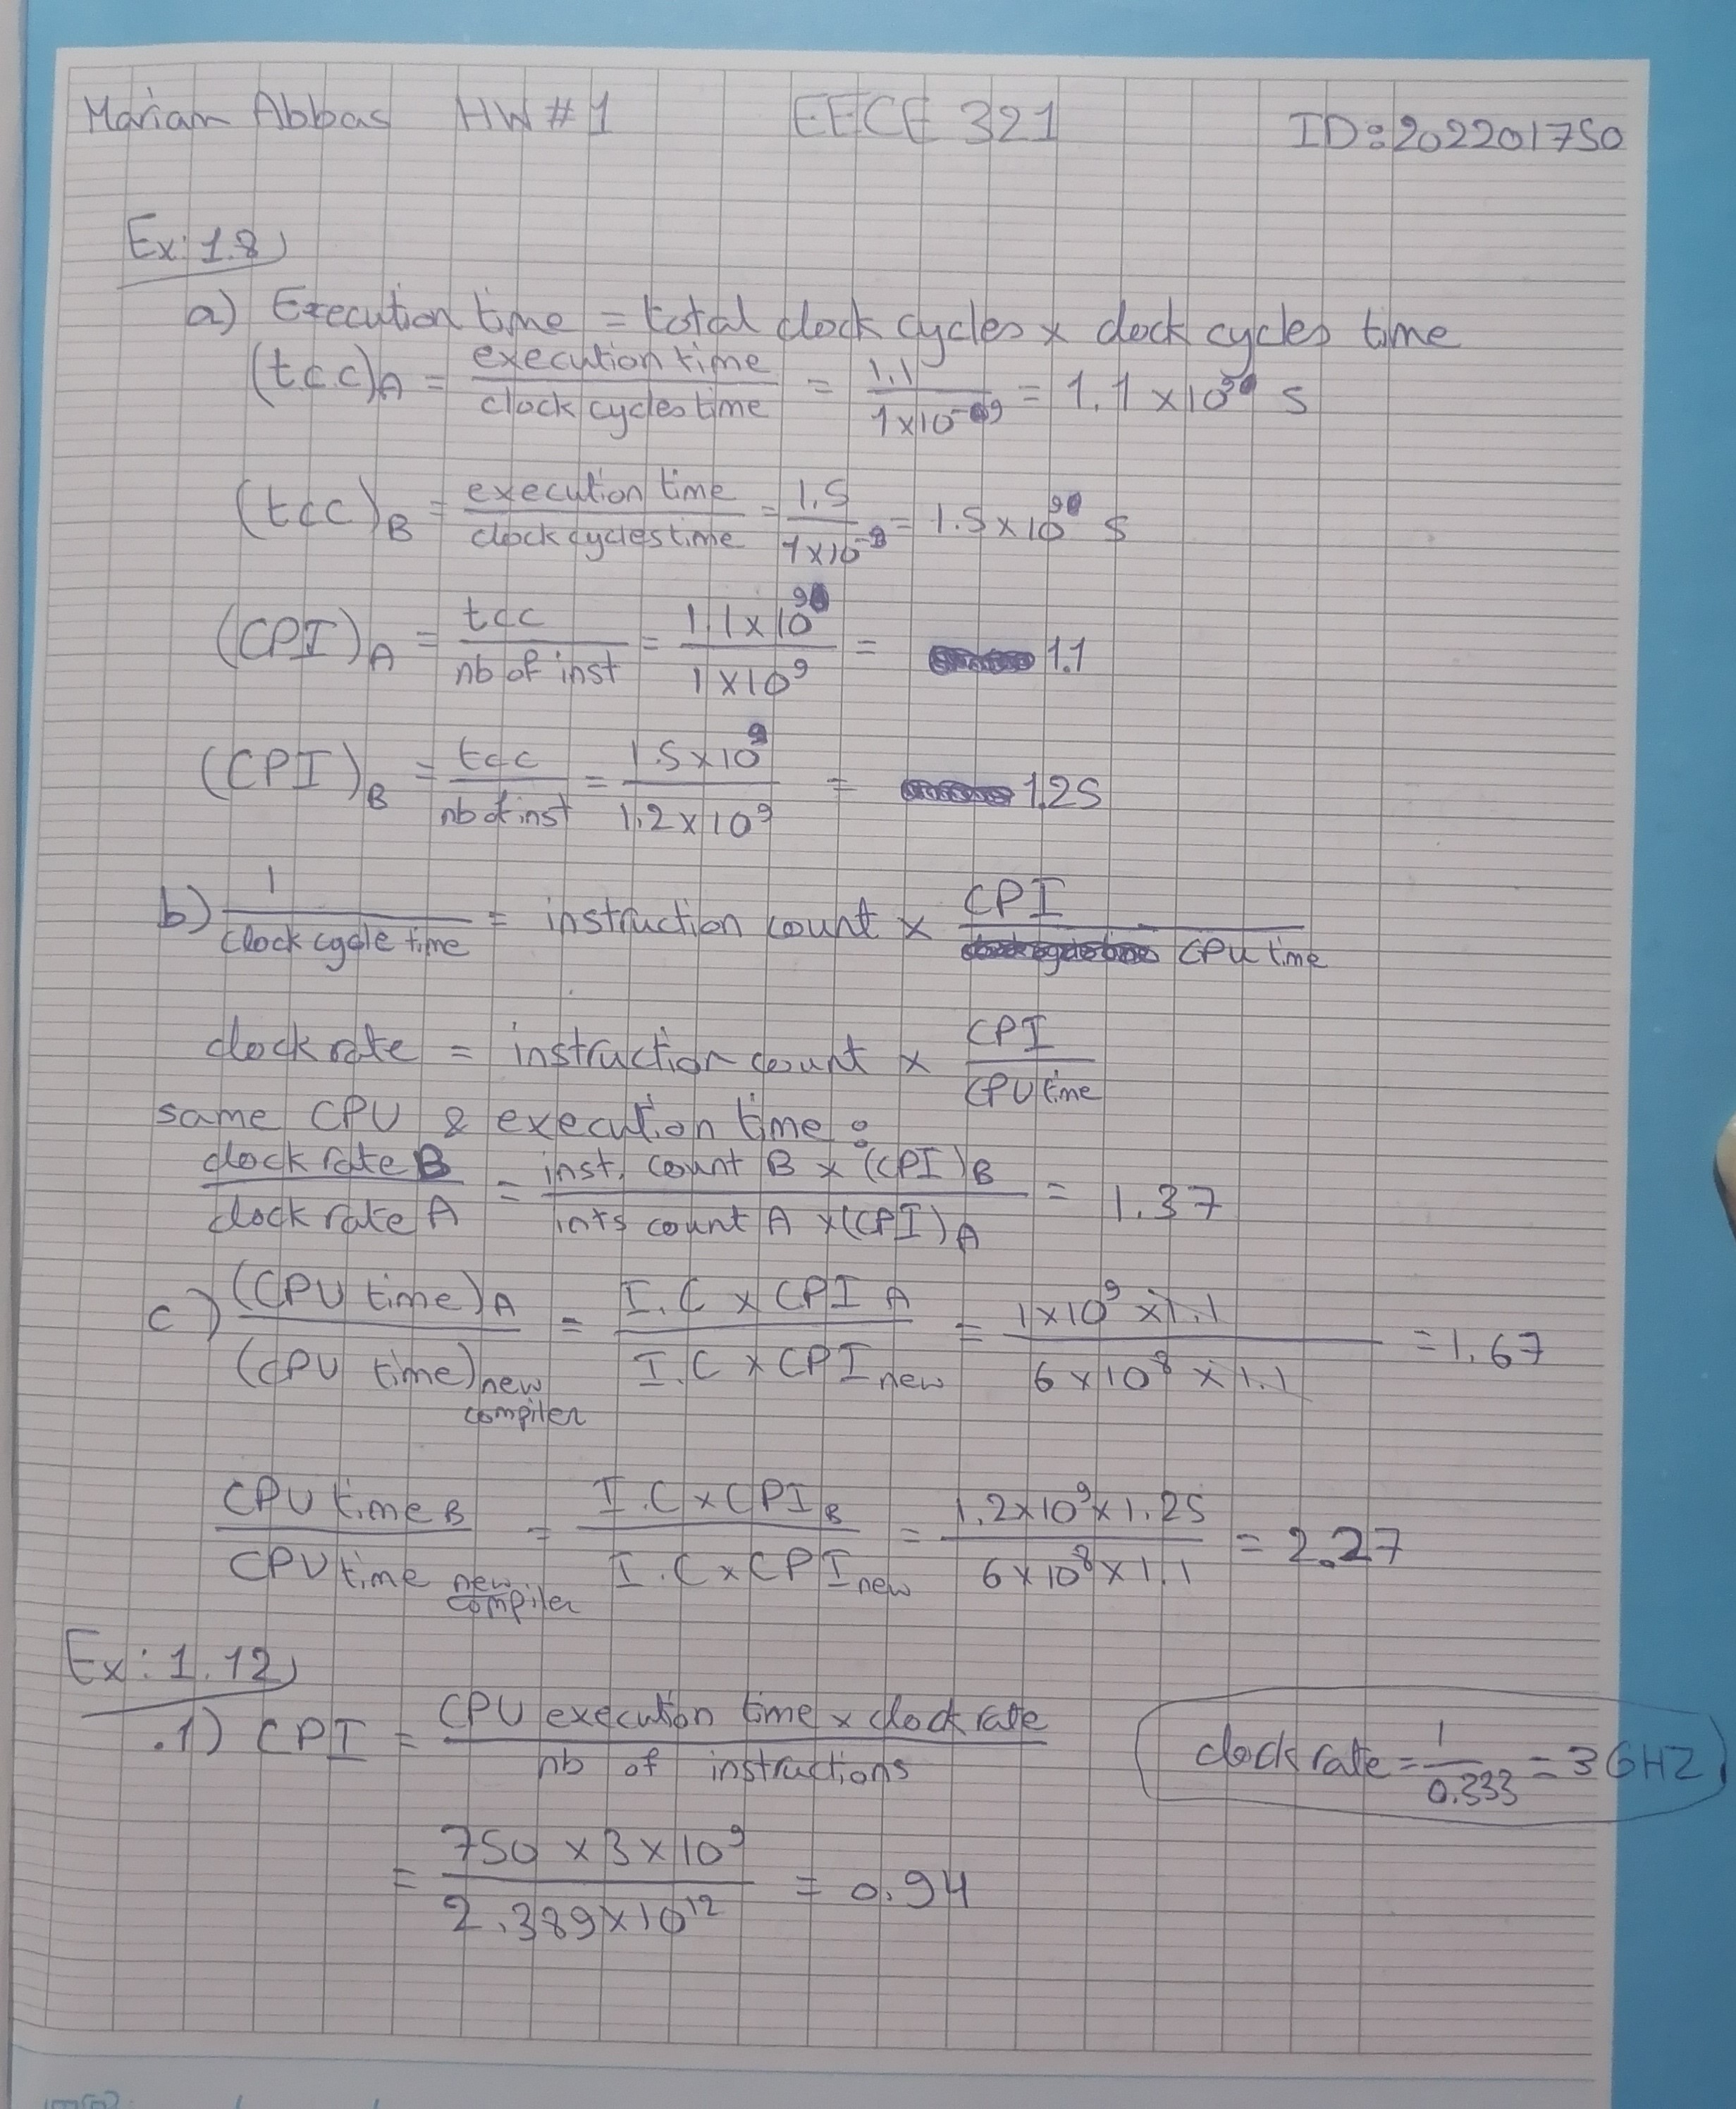 Mariam Abbas HW#1 EECE 321 ID:202201750
Ex: 1.8)
a) Execution time = total clock cycles x clock cycles time
(tcc)A = execution time / clock cycles time = 1.1 / 1x10^-9 = 1.1 x10^9 s
(tcc)B = execution time / clock cycles time = 1.5 / 1x10^-9 = 1.5x10^9 s
(CPI)A = tcc / nb of inst = 1.1x10^9 / 1x10^9 = 1.1
(CPI)B = tcc / nb of inst = 1.5x10^9 / 1.2x10^9 = 1.25
b) 1 / clock cycle time = instruction count x CPI / CPU time
clock rate = instruction count x CPI / CPU time
same CPU & execution time:
clock rate B / clock rate A = inst. count B x (CPI)B / ints count A x(CPI)A = 1.37
c) (CPU time)A / (CPU time)new compiler = I.C x CPI A / I.C x CPI new = 1x10^9 x1.1 / 6x10^8 x1.1 = 1.67
CPU time B / CPU time new compiler = I.C x CPI B / I.C x CPI new = 1.2x10^9 x 1.25 / 6x10^8 x 1.1 = 2.27
Ex: 1.12)
.1) CPI = CPU execution time x clock rate / nb of instructions
clock rate = 1 / 0.333 = 3GHZ
= 750 x 3x10^9 / 2.389x10^12 = 0.94